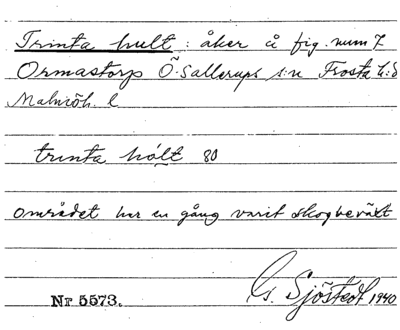 Trinta hult : åker å fig. num 7
Ormastorp Ö. Sallerups s:n Frosta h:d
Malmöh. l
trinta hólt 80
området har en gång varit skogbeväxt
Gs. Sjöstedt 1940
Nr 5573.